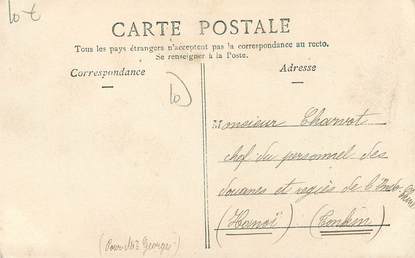 10 €
CARTE POSTALE
Tous les pays étrangers n'acceptent pas la correspondance au recto.
Se renseigner à la Poste.
Correspondance
Adresse
10
Monsieur Charvot
chef du personnel des
douanes et regies de l'Indo-Chine
(Hanoï) (Tonkin)
(Pour Mr Georges)